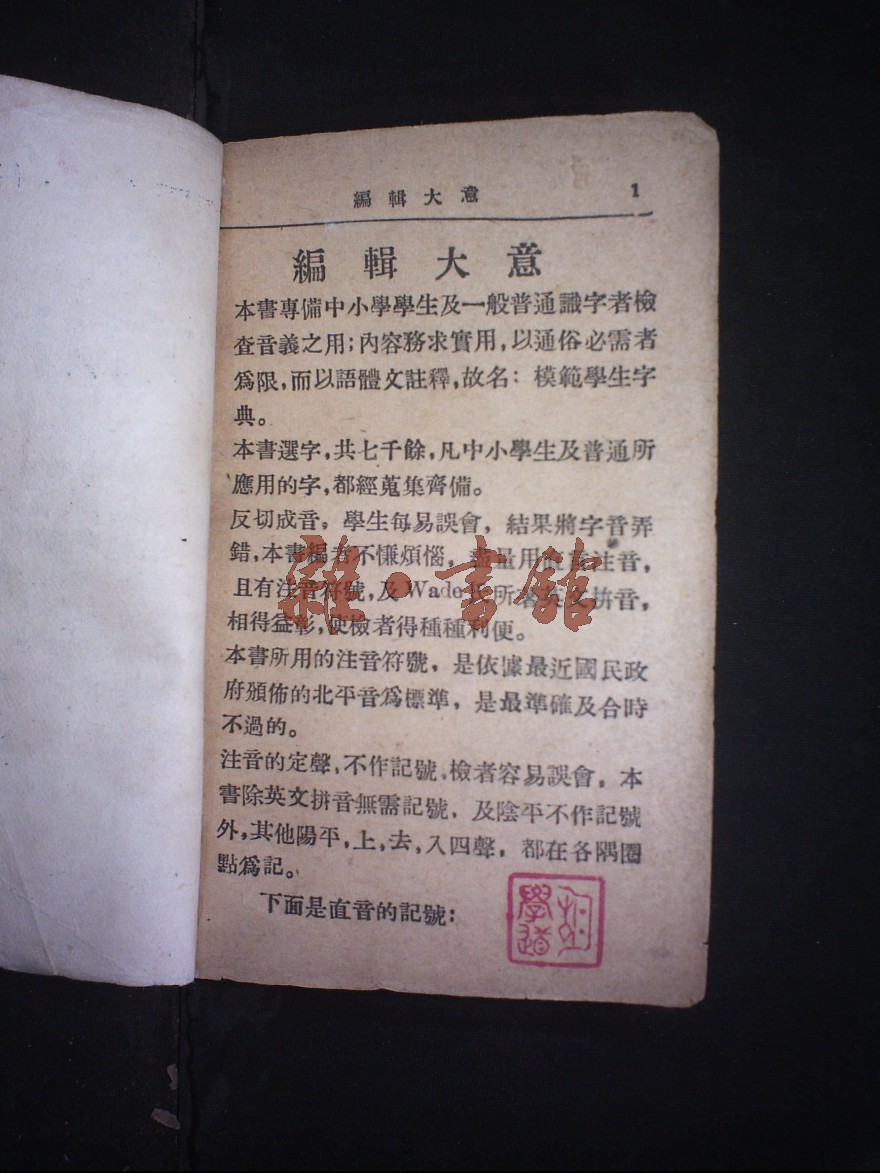 編輯大意 1
編輯大意
本書專備中小學學生及一般普通識字者檢
查音義之用；內容務求實用，以通俗必需者
爲限，而以語體文註釋，故名：模範學生字
典。
本書選字，共七千餘，凡中小學生及普通所
應用的字，都經蒐集齊備。
反切成音，學生每易誤會，結果將字音弄
錯，本書編者不慊煩惱，盡量用直音注音，
且有注音符號，及Wade氏所著英文拚音，
相得益彰，使檢者得種種利便。
本書所用的注音符號，是依據最近國民政
府頒佈的北平音爲標準，是最準確及合時
不過的。
注音的定聲，不作記號，檢者容易誤會，本
書除英文拚音無需記號，及陰平不作記號
外，其他陽平，上，去，入四聲，都在各隅圈
點爲記。
下面是直音的記號：
雜·書館
學道